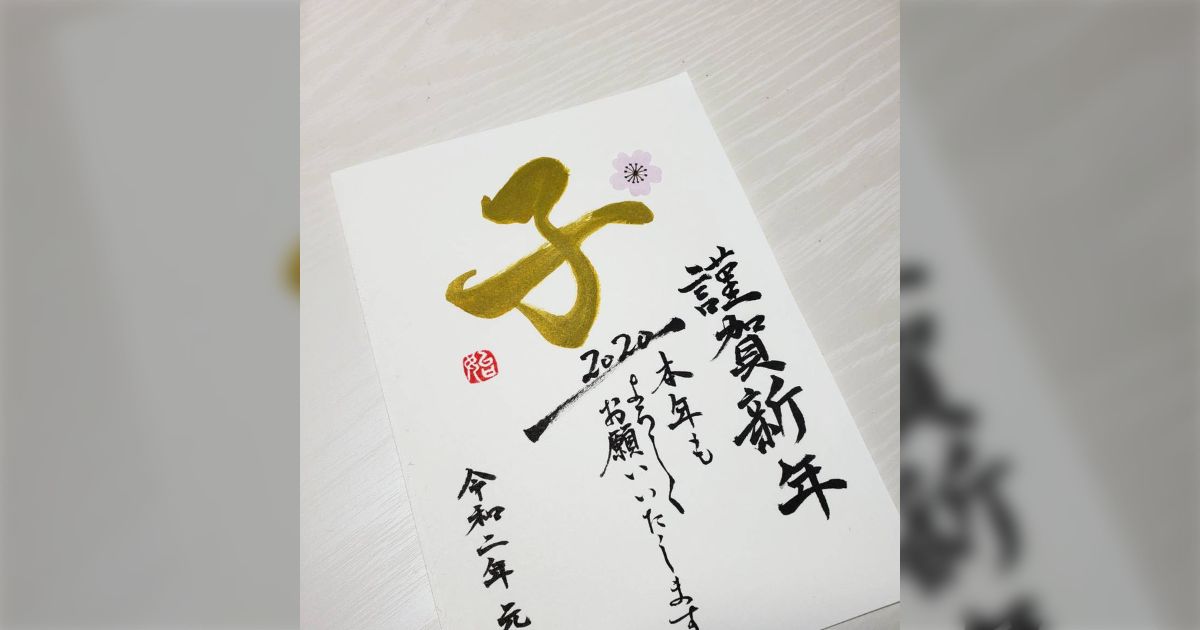 謹賀新年
本年も
よろしく
お願いいたします
2020
子
始
令和二年 元